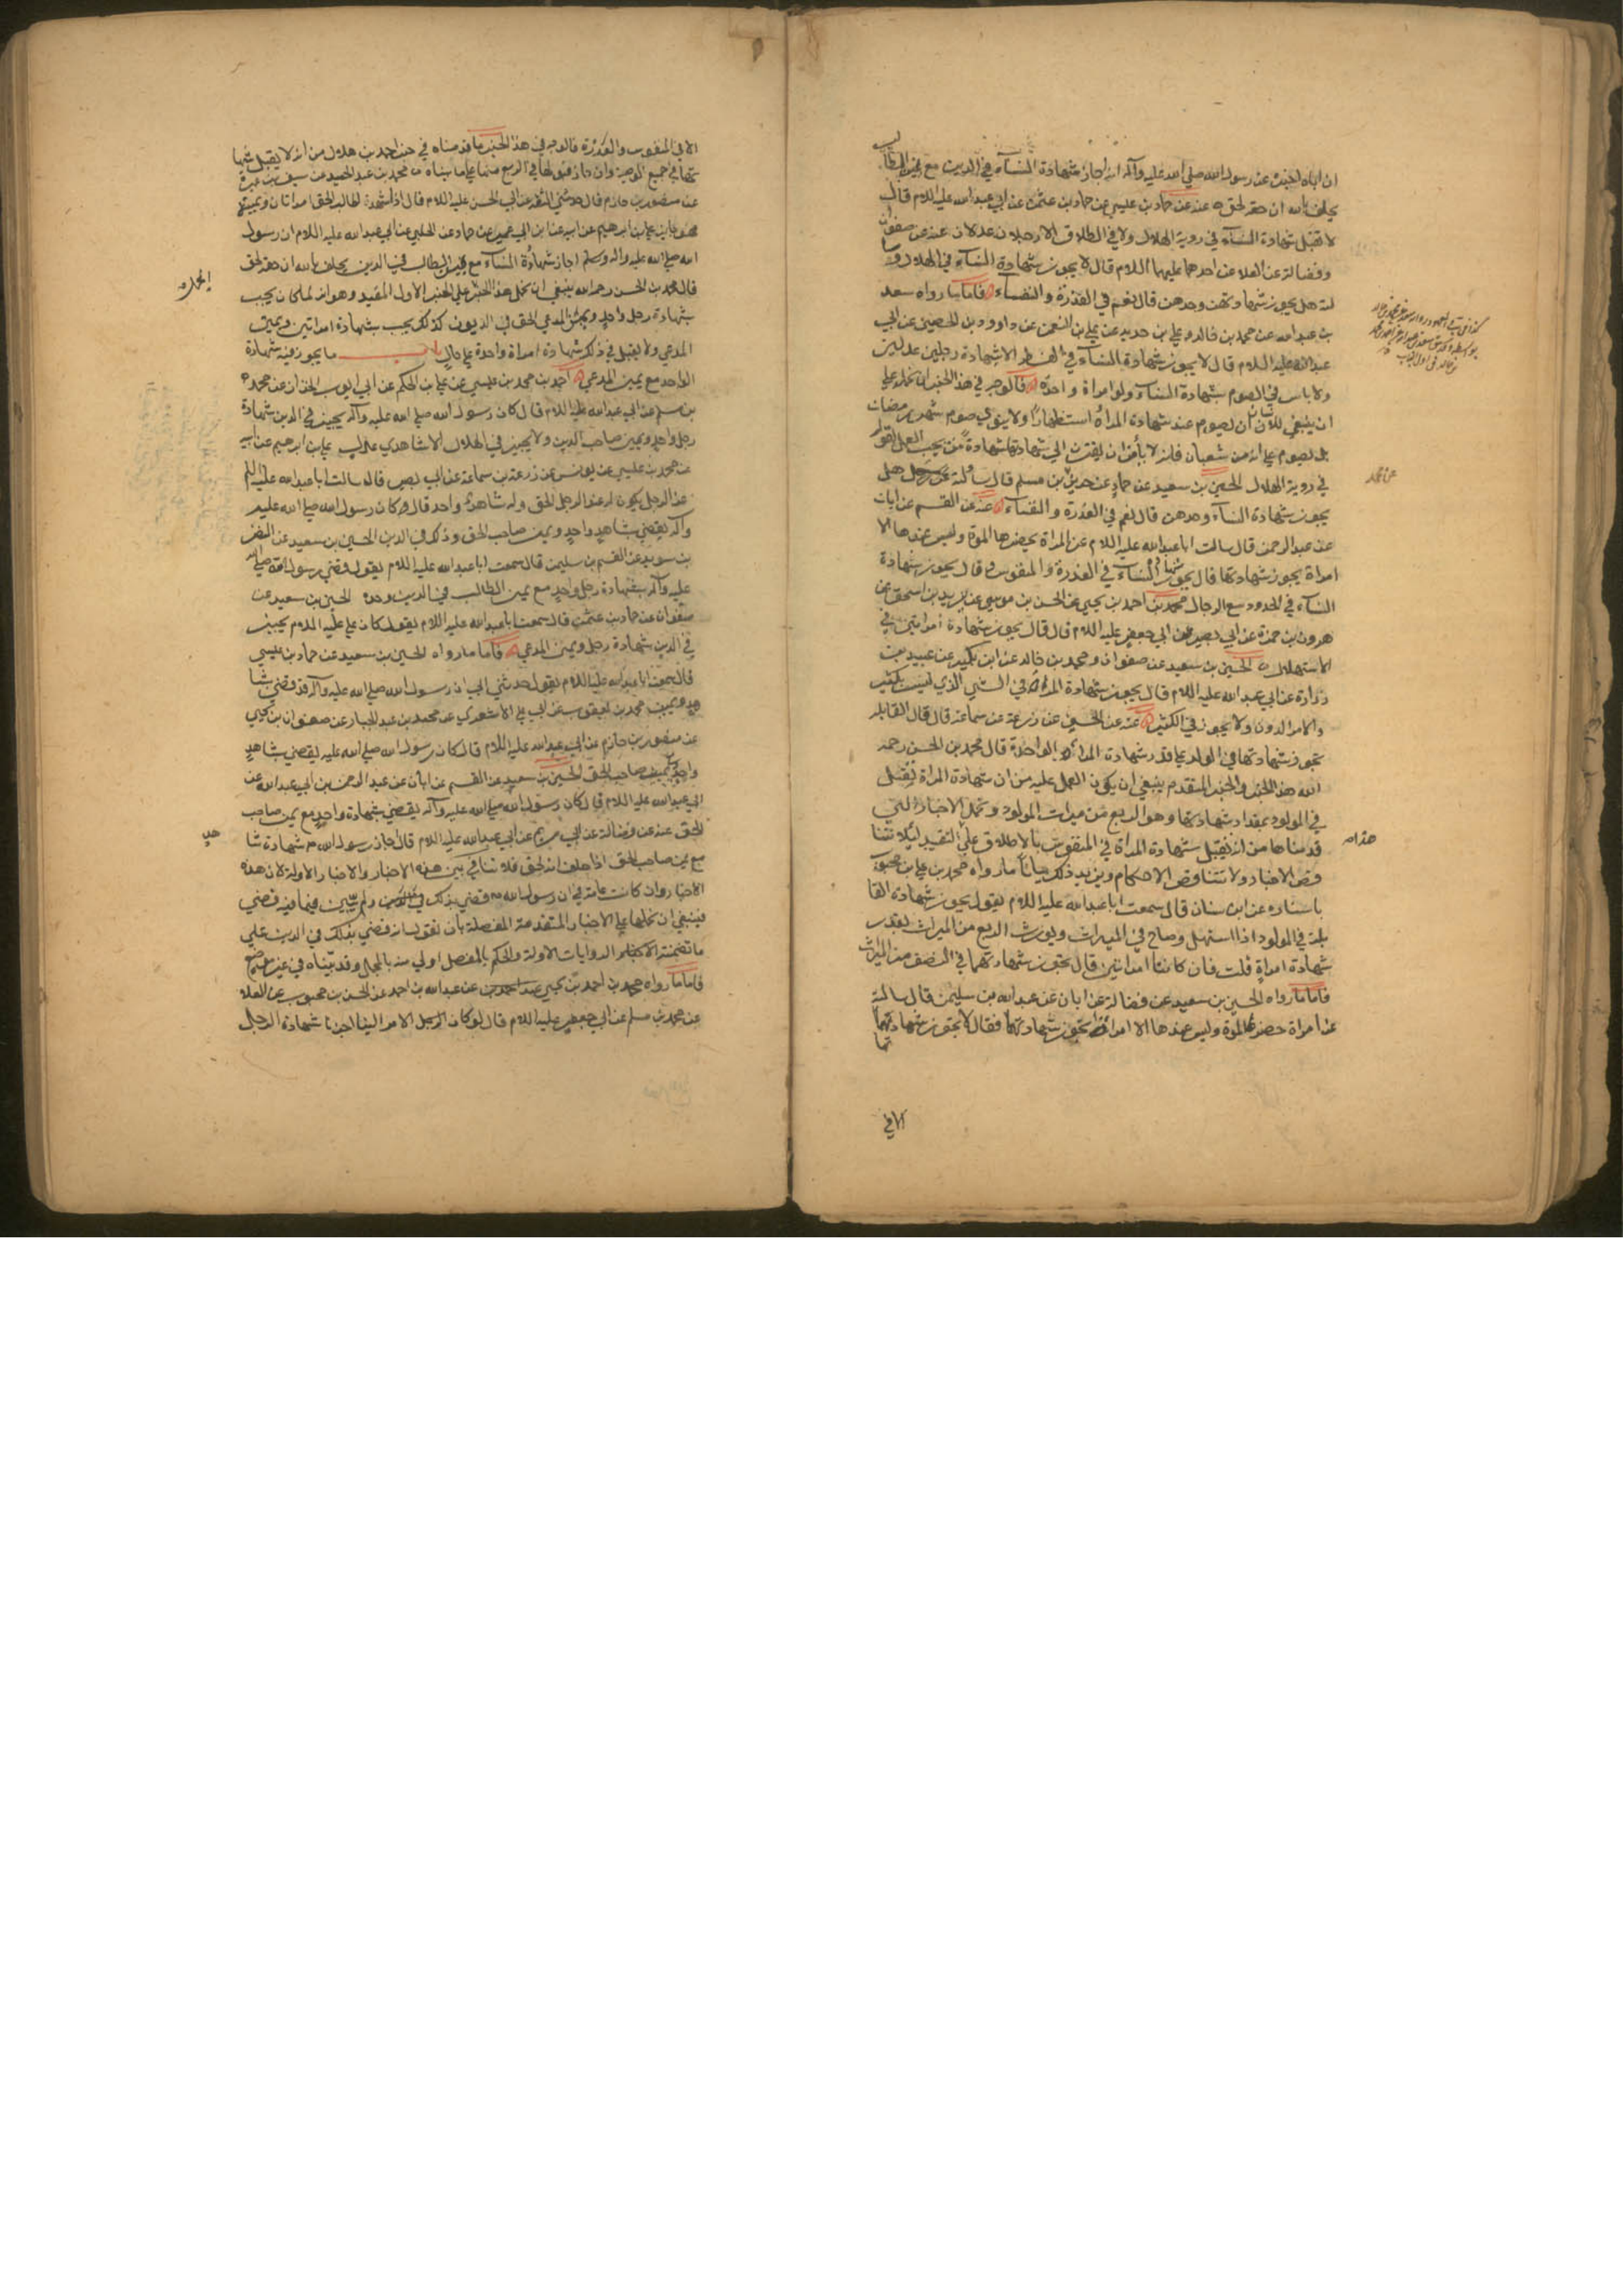 ان اباه اخبره عن رسول الله صلي الله عليه وآله انه اجاز شهادة النسآء في الدين مع يمين الطالب
يحلف بالله ان حقه لحق عنه عن حماد بن عيسي عن حماد بن عثمن عن ابي عبد الله عليه اللام قال
لا تقبل شهادة النسآء في روية الهلال ولا في الطلاق الا رجلان عدلان عنه عن صفوان
وفضالة عن العلا عن احدهما عليهما اللام قال لا يجوز شهادة النسآء في الهلال وسا
لته هل يجوز شهادتهن وحدهن قال نعم في العذرة والنفساء فاما ما رواه سعد
بن عبد الله عن محمد بن خالد وعلي بن حديد عن علي بن النعمن عن داوود بن الحصين عن ابي
عبد الله عليه اللام قال لا يجوز شهادة النسآء في الفطر الا شهادة رجلين عدلين
ولا باس في الصوم بشهادة النساء ولو امراة واحدة فالوجه في هذا الخبر ان نحمله علي
ان ينبغي للانسان ان يصوم عند شهادة المراة استظهارا ولا ينوي صوم شهر رمضان
بل يصوم علي انه من شعبان فانه لا يأمن ان يفترن الي شهادتها شهادة من يجب العمل بقوله
في روية الهلال الحسين بن سعيد عن حماد عن حريز بن مسلم قال سالته عن رجل هل
يجوز شهادة النسآء وحدهن قال نعم في العذرة والنفساء عنه عن القسم عن ابان
عن عبد الرحمن قال سالت ابا عبد الله عليه اللام عن المراة يحضرها الموة وليس عندها الا
امراة يجوز شهادتها قال يجوز شهادة النسآء في العذرة والمنفوس وقال يجوز شهادة
النسآء في الحدود مع الرجال محمد بن احمد بن يحيي عن الحسن بن موسي عن يزيد بن اسحق عن
هرون بن حمزة عن ابي بصير عن ابي جعفر عليه اللام قال قال يجوز شهادة امراتين في
الاستهلال الحسين بن سعيد عن صفوان ومحمد بن خالد عن ابن بكير عن عبيد بن
زرارة عن ابي عبد الله عليه اللام قال يجوز شهادة المراة في الشي الذي ليس بكثير
والامر الدون ولا يجوز في الكثير عنه عن الحسن عن زرعة عن سماعة قال قال القابلة
تجوز شهادتها في الولد علي قدر شهادة المراة الواحدة قال محمد بن الحسن رحمه
الله هذا الخبر والخبر المتقدم ينبغي ان يكون العمل عليه من ان شهادة المراة تقبل
في المولود بمقدار شهادتها وهو الربع من ميراث المولود وتحمل الاخبار التي
قدمناها من انه تقبل شهادة المراة في المنفوس بالاطلاق علي التقييد لئلا تتنا
قض الاخبار ولا تتناقض الاحكام ويزيد ذلك بيانا ما رواه محمد بن علي بن محبوب
باسناده عن ابن سنان قال سمعت ابا عبد الله عليه اللام يقول يجوز شهادة القا
بلة في المولود اذا استهل وصاح في الميراث ويورث الربع من الميراث بقدر
شهادة امراة قلت فان كانتا امراتين قال تجوز شهادتهما في النصف من الميراث
فاما ما رواه الحسين بن سعيد عن فضالة عن ابان عن عبد الله بن سليمن قال سالته
عن امراة حضرها الموة وليس عندها الا امراة تجوز شهادتها فقال لا تجوز شهادتها
الا في
هذا
عن محمد
الا في المنفوس والعذرة فالوجه في هذا الخبر ما قدمناه في خبر احمد بن هلال من انه لا يقبل شها
دتها في جميع الوصية وان جاز قبولها في الربع منها علي ما بيناه محمد بن عبد الحميد عن سيف بن عميرة
عن منصور بن حازم قال حدثني الثقة عن ابي الحسن عليه اللام قال اذا شهد لطالب الحق امراتان ويمينه
فهو جايز علي بن ابرهيم عن ابيه عن ابن ابي عمير عن حماد عن الحلبي عن ابي عبد الله عليه اللام ان رسول
الله صلي الله عليه واله وسلم اجاز شهادة النساء مع يمين الطالب في الدين يحلف بالله ان حقه لحق
قال محمد بن الحسن رحمه الله ينبغي ان نحمل هذا الخبر علي الخبر الاول المقيد وهو انه لما كان يجب
بشهادة رجل واحد ويمين المدعي الحق في الديون كذلك يجب بشهادة امراتين ويمين
المدعي ولا يقبل في ذلك شهادة امراة واحدة علي حال باب ما يجوز فيه شهادة
الواحد مع يمين المدعي احمد بن محمد بن عيسي عن علي بن الحكم عن ابي ايوب الخزاز عن محمد
بن مسلم عن ابي عبد الله عليه اللام قال كان رسول الله صلي الله عليه وآله يجيز في الدين شهادة
رجل واحد ويمين صاحب الدين ولا يجيز في الهلال الا شاهدي عدل علي بن ابرهيم عن ابيه
عن محمد بن عيسي عن يونس عن زرعة بن سماعة عن ابي بصير قال سالت ابا عبد الله عليه اللم
عن الرجل يكون له عند الرجل الحق وله شاهد واحد قال فقال كان رسول الله صلي الله عليه
وآله يقضي بشاهد واحد ويمين صاحب الحق وذلك في الدين الحسين بن سعيد عن النضر
بن سويد عن القسم بن سليمن قال سمعت ابا عبد الله عليه اللام يقول قضي رسول الله صلي الله
عليه وآله بشهادة رجل واحد مع يمين الطالب في الدين وحده الحسين بن سعيد عن
صفوان عن حماد بن عثمن قال سمعت ابا عبد الله عليه اللام يقول كان علي عليه اللام يجيز
في الدين شهادة رجل ويمين المدعي فاما ما رواه الحسين بن سعيد عن حماد بن عيسي
قال سمعت ابا عبد الله عليه اللام يقول حدثني ابي ان رسول الله صلي الله عليه وآله قد قضي بشا
هد ويمين محمد بن يعقوب عن ابي علي الاشعري عن محمد بن عبد الجبار عن صفوان بن يحيي
عن منصور بن حازم عن ابي عبد الله عليه اللام قال كان رسول الله صلي الله عليه يقضي بشاهد
واحد ويمين صاحب الحق الحسين بن سعيد عن القسم عن ابان عن عبد الرحمن بن ابي عبد الله عن
ابي عبد الله عليه اللام قال كان رسول الله صلي الله عليه وآله يقضي بشهادة واحد مع يمين صاحب
الحق عنه عن فضالة عن ابي مريم عن ابي عبد الله عليه اللام قال اجاز رسول الله شهادة شا
مع يمين صاحب الحق اذا حلف انه لحق فلا تنافي بين هذه الاخبار والاخبار الاولة لان هذه
الاخبار وان كانت عامة في ان رسول الله قضي بذلك ولم يبين فيما فيه قضي
فينبغي ان نحملها علي الاخبار المتقدمة المفصلة بأن نقول انه قضي بذلك في الدين علي
ما تضمنته الروايات الاولة والحكم بالمفصل اولي منه بالمجمل وقد بيناه في غير موضع
فاما ما رواه محمد بن احمد بن يحيي عن عبد الله بن احمد عن الحسن بن محبوب عن العلا
عن محمد بن مسلم عن ابي جعفر عليه اللام قال لو كان الامر الينا اجزنا شهادة الرجل
هد